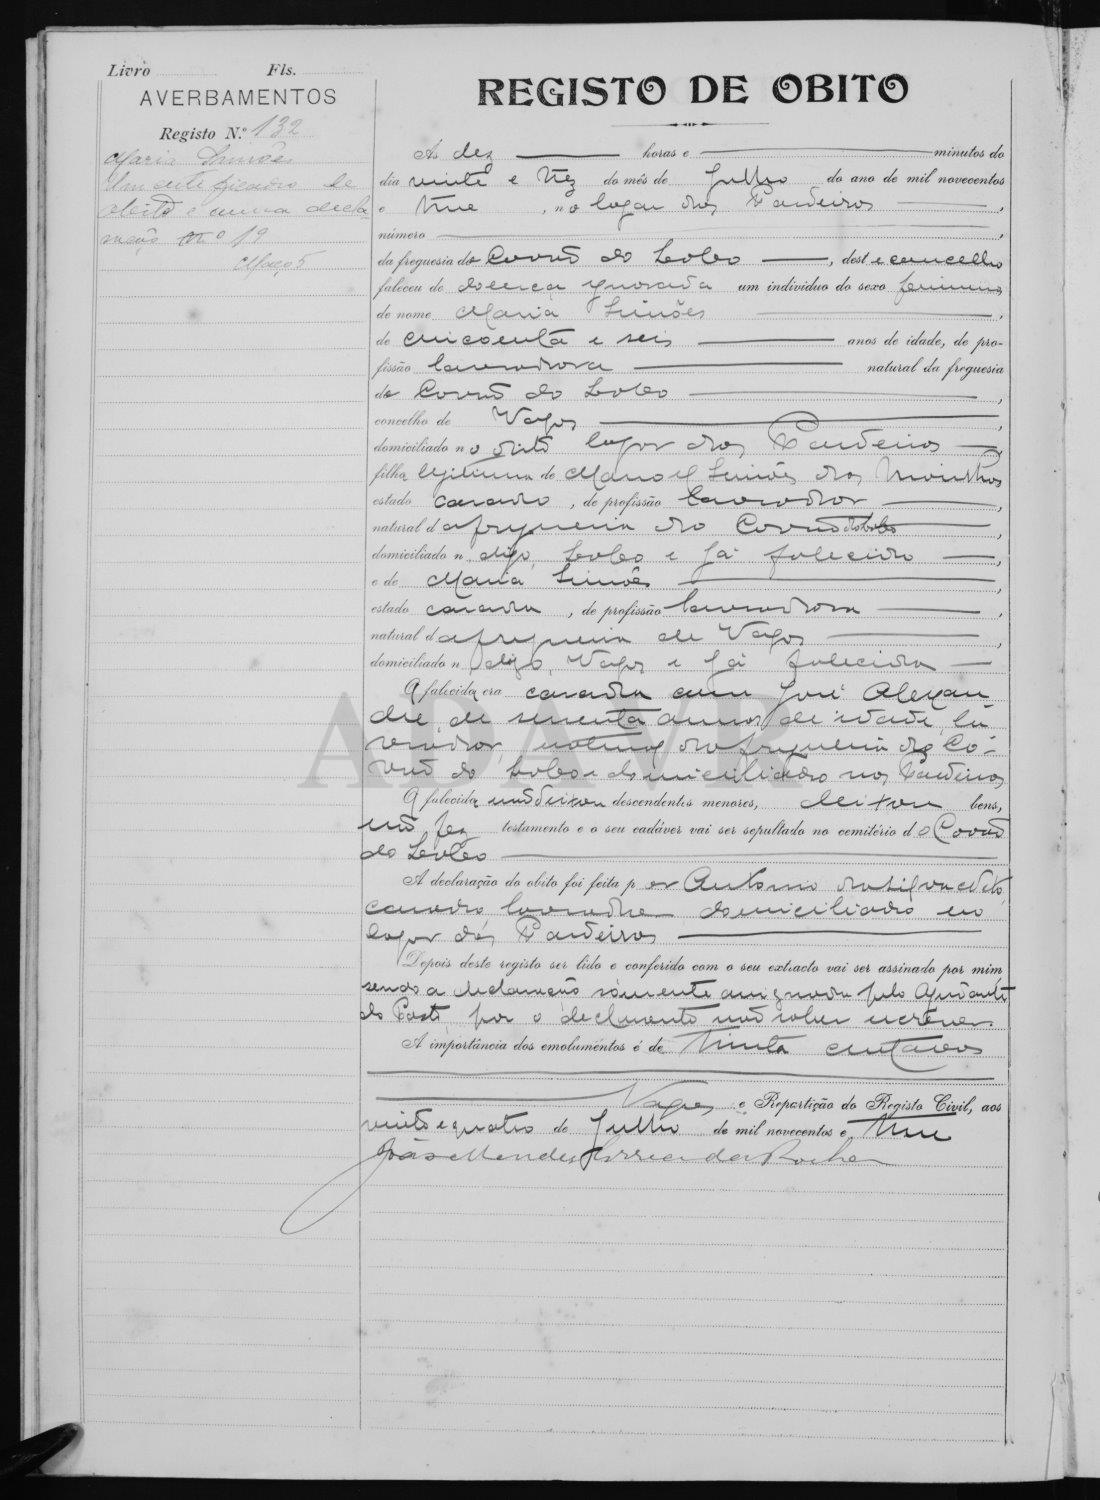 Livro Fls.
AVERBAMENTOS
Registo N.º 132
Maria Simões
Um certificado de
obito e uma decla-
ração nº 19
Março 5
REGISTO DE OBITO
Às dez horas e minutos do
dia vinte e trez do mês de Julho do ano de mil novecentos
e treze, no logar dos Cardeiros,
número
da freguesia do Covão do Lobo, deste concelho
faleceu de doença ignorada um individuo do sexo feminino
de nome Maria Simões,
de cincoenta e seis anos de idade, de pro-
fissão lavradora natural da freguesia
do Covão do Lobo,
concelho de Vagos,
domiciliado no dito logar dos Cardeiros,
filha legitima de Manoel Simões dos
estado casado, de profissão lavrador,
natural da freguesia do Covão do Lobo,
domiciliado n digo, Lobo e já falecido,
e de Maria Simões,
estado casada, de profissão lavradora,
natural da freguesia de Vagos,
domiciliado n digo, Vagos e já falecida
A falecida era casada com José Alexan-
dre, de sessenta annos de idade, la-
vrador, natural da freguesia do Co-
vão do Lobo e domiciliado nos Cardeiros
A falecida não deixou descendentes menores, deixou bens,
não fez testamento e o seu cadáver vai ser sepultado no cemitério do Covão
do Lobo
A declaração do obito foi feita por Antonio da Silva
casado, lavrador domiciliado no
logar dos Cardeiros
Depois deste registo ser lido e conferido com o seu extracto vai ser assinado por mim,
sendo a declaração sómente assignada pelo Ajudante
do Posto, por o declarante não saber escrever.
A importância dos emolumentos é de trinta centavos
Vagos e Repartição do Registo Civil, aos
vinte e quatro de Julho de mil novecentos e treze
João Mendes Correia da Rocha
ADAVR